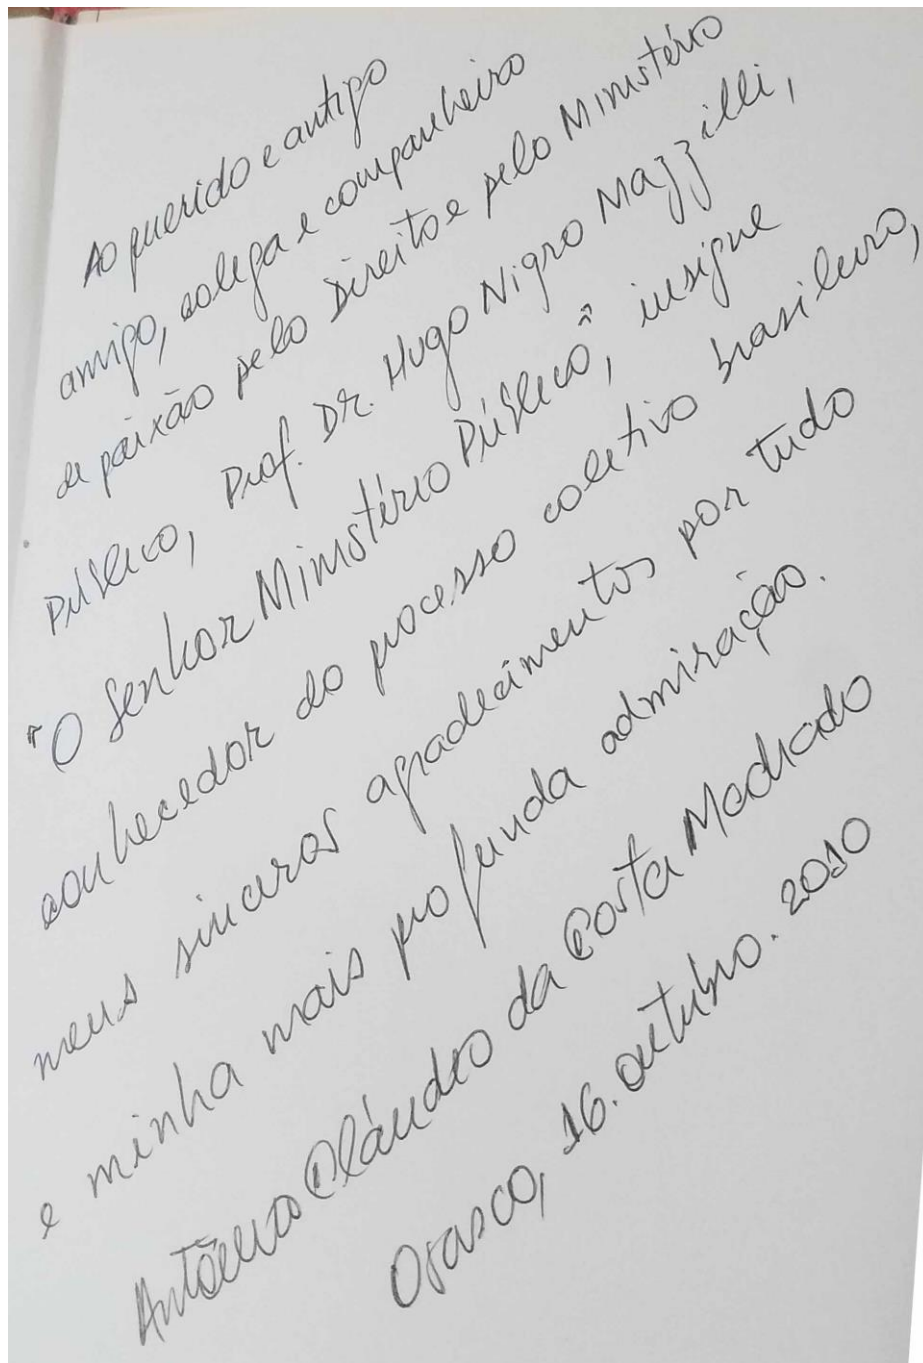 Ao querido e antigo
amigo, colega e companheiro
de paixão pelo Direito e pelo Ministério
Público, Prof. Dr. Hugo Nigro Mazzilli,
"O Senhor Ministério Público", insigne
conhecedor do processo coletivo brasileiro,
meus sinceros agradecimentos por tudo
e minha mais profunda admiração.
Antônio Cláudio da Costa Machado
Osasco, 16. outubro. 2010